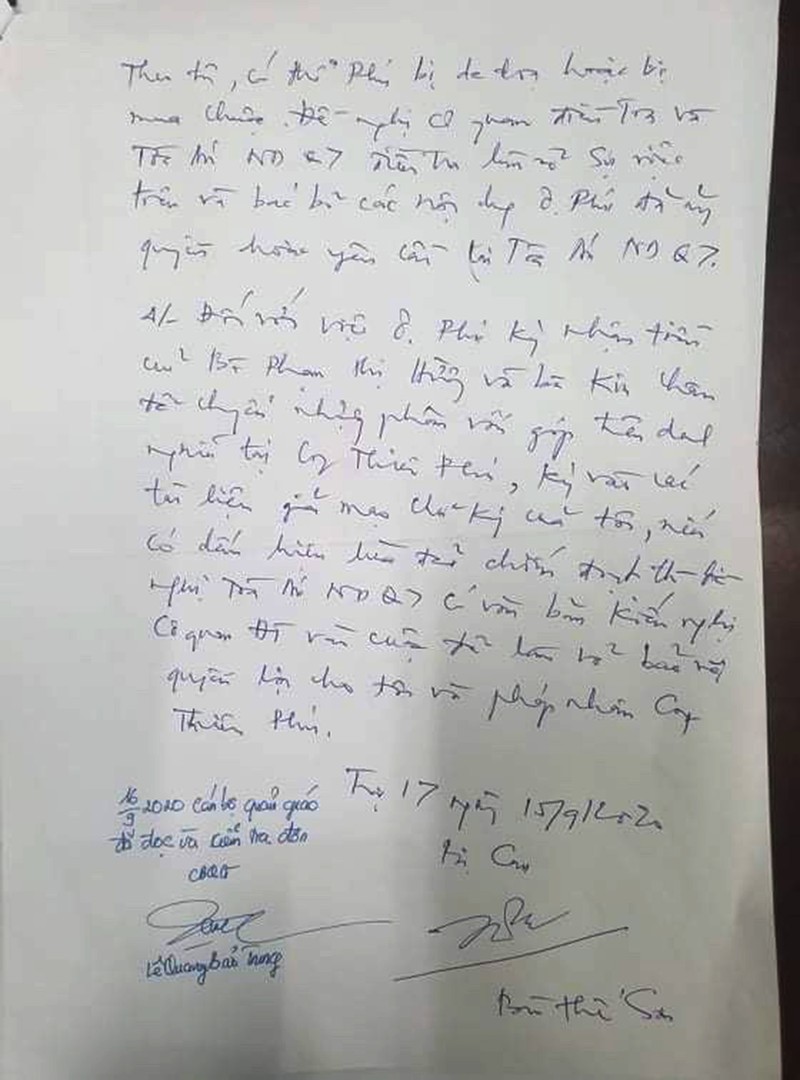 Theo tôi, có thể Phú bị đe dọa hoặc bị
mua chuộc. Đề nghị cơ quan điều tra và
Tòa án ND Q7 điều tra làm rõ sự việc
trên và bác bỏ các nội dung ô. Phú đã ủy
quyền hoặc yêu cầu tại Tòa án ND Q7.
4/- Đối với việc ô. Phú ký nhận tiền
của Bà Phan Thị Hồng và bà Kim
để chuyển nhượng phần vốn góp trên
tại Cty Thiên Phú, ký vào các
tài liệu giả mạo chữ ký của tôi, nếu
có dấu hiệu lừa đảo chiếm đoạt thì đề
nghị Tòa án ND Q7 có văn bản kiến nghị
Cơ quan ĐT vào cuộc để làm rõ bảo vệ
quyền lợi cho tôi và pháp nhân Cty
Thiên Phú.
T17 ngày 15/9/2020
Bị Cáo
16/9 2020 Cán bộ quản giáo
đã đọc và kiểm tra đơn
CBQG
Lê Quang Bảo Trung
Bùi Thế Sơn